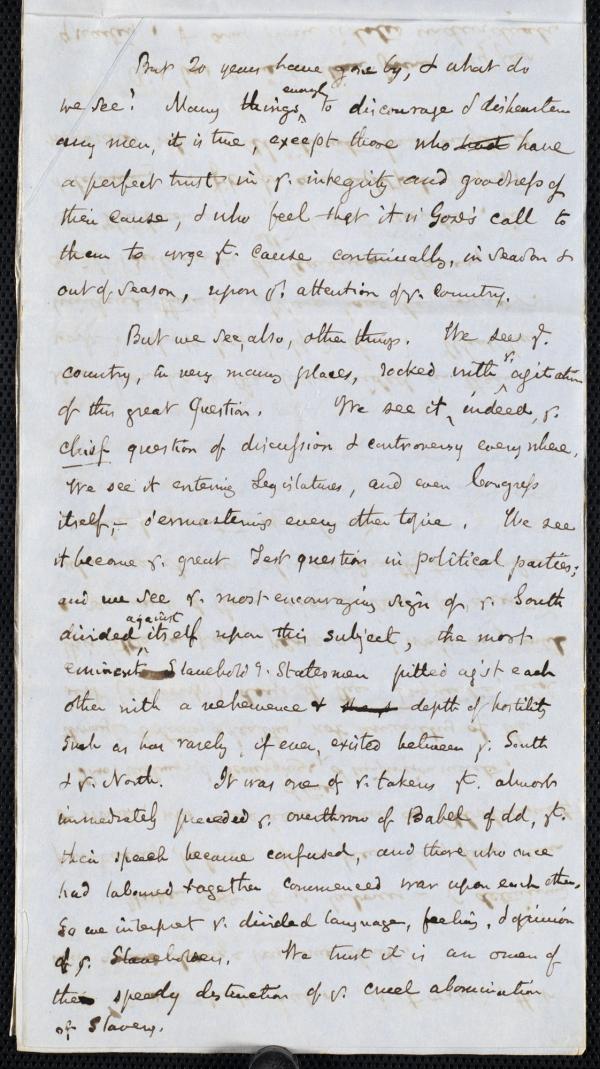 But 20 years have gone by, & what do
we see? Many things enough to discourage & dishearten
any men, it is true, except those who had have
a perfect trust in ye. integrity and goodness of
their cause, & who feel that it is God's call to
them to urge yt. cause continually, in season &
out of season, upon ye. attention of ye. Country.
But we see, also, other things. We see ye.
country, in very many places, rocked with ye. agitation
of this great Question. We see it, indeed, ye.
chief question of discussion & controversy everywhere.
We see it entering Legislatures, and even Congress
itself,- o'ermastering every other topic. We see
it become ye. great Test question in political parties;
and we see ye. most encouraging sign of ye. South
divided against itself upon this subject, the most
eminent Slavehold'g. Statesmen pitted ag'st each
other with a vehemence & depth of hostility
such as has rarely, if ever, existed between ye. South
& ye. North. It was one of ye. tokens yt. almost
immediately preceded ye. overthrow of Babel of old, yt.
their speech became confused, and those who once
had labored together commenced war upon each other.
So we interpret ye. divided language, feeling, & opinion
of ye. Slaveholders. We trust it is an omen of
the speedy destruction of ye. cruel abomination
of Slavery.